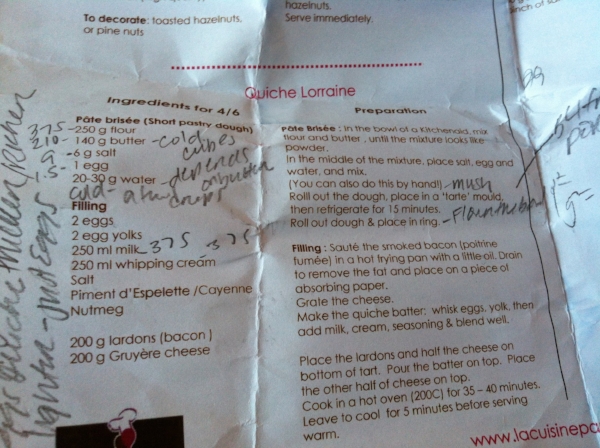 hazelnuts.
To decorate: toasted hazelnuts,
or pine nuts
Serve immediately.
Quiche Lorraine
Ingredients for 4/6
Pâte brisée (Short pastry dough)
375 - 250 g flour
210 - 140 g butter - cold cubes
9 - 6 g salt
1.5 - 1 egg
20-30 g water - depends on butter
cold - a few drops
Filling
2 eggs
2 egg yolks
250 ml milk 375 375
250 ml whipping cream
Salt
Piment d'Espelette /Cayenne
Nutmeg
200 g lardons (bacon)
200 g Gruyère cheese
Preparation
Pâte Brisée : In the bowl of a Kitchenaid, mix
flour and butter , until the mixture looks like
powder.
In the middle of the mixture, place salt, egg and
water, and mix.
(You can also do this by hand!) - mush
Roll out the dough, place in a 'tarte' mould,
then refrigerate for 15 minutes.
Roll out dough & place in ring. - Flour the
Filling : Sauté the smoked bacon (poitrine
fumée) in a hot frying pan with a little oil. Drain
to remove the fat and place on a piece of
absorbing paper.
Grate the cheese.
Make the quiche batter: whisk eggs, yolk, then
add milk, cream, seasoning & blend well.
Place the lardons and half the cheese on
bottom of tart. Pour the batter on top. Place
the other half of cheese on top.
Cook in a hot oven (200C) for 35 – 40 minutes.
Leave to cool for 5 minutes before serving
warm.
www.lacuisinepa
lighter - just eggs